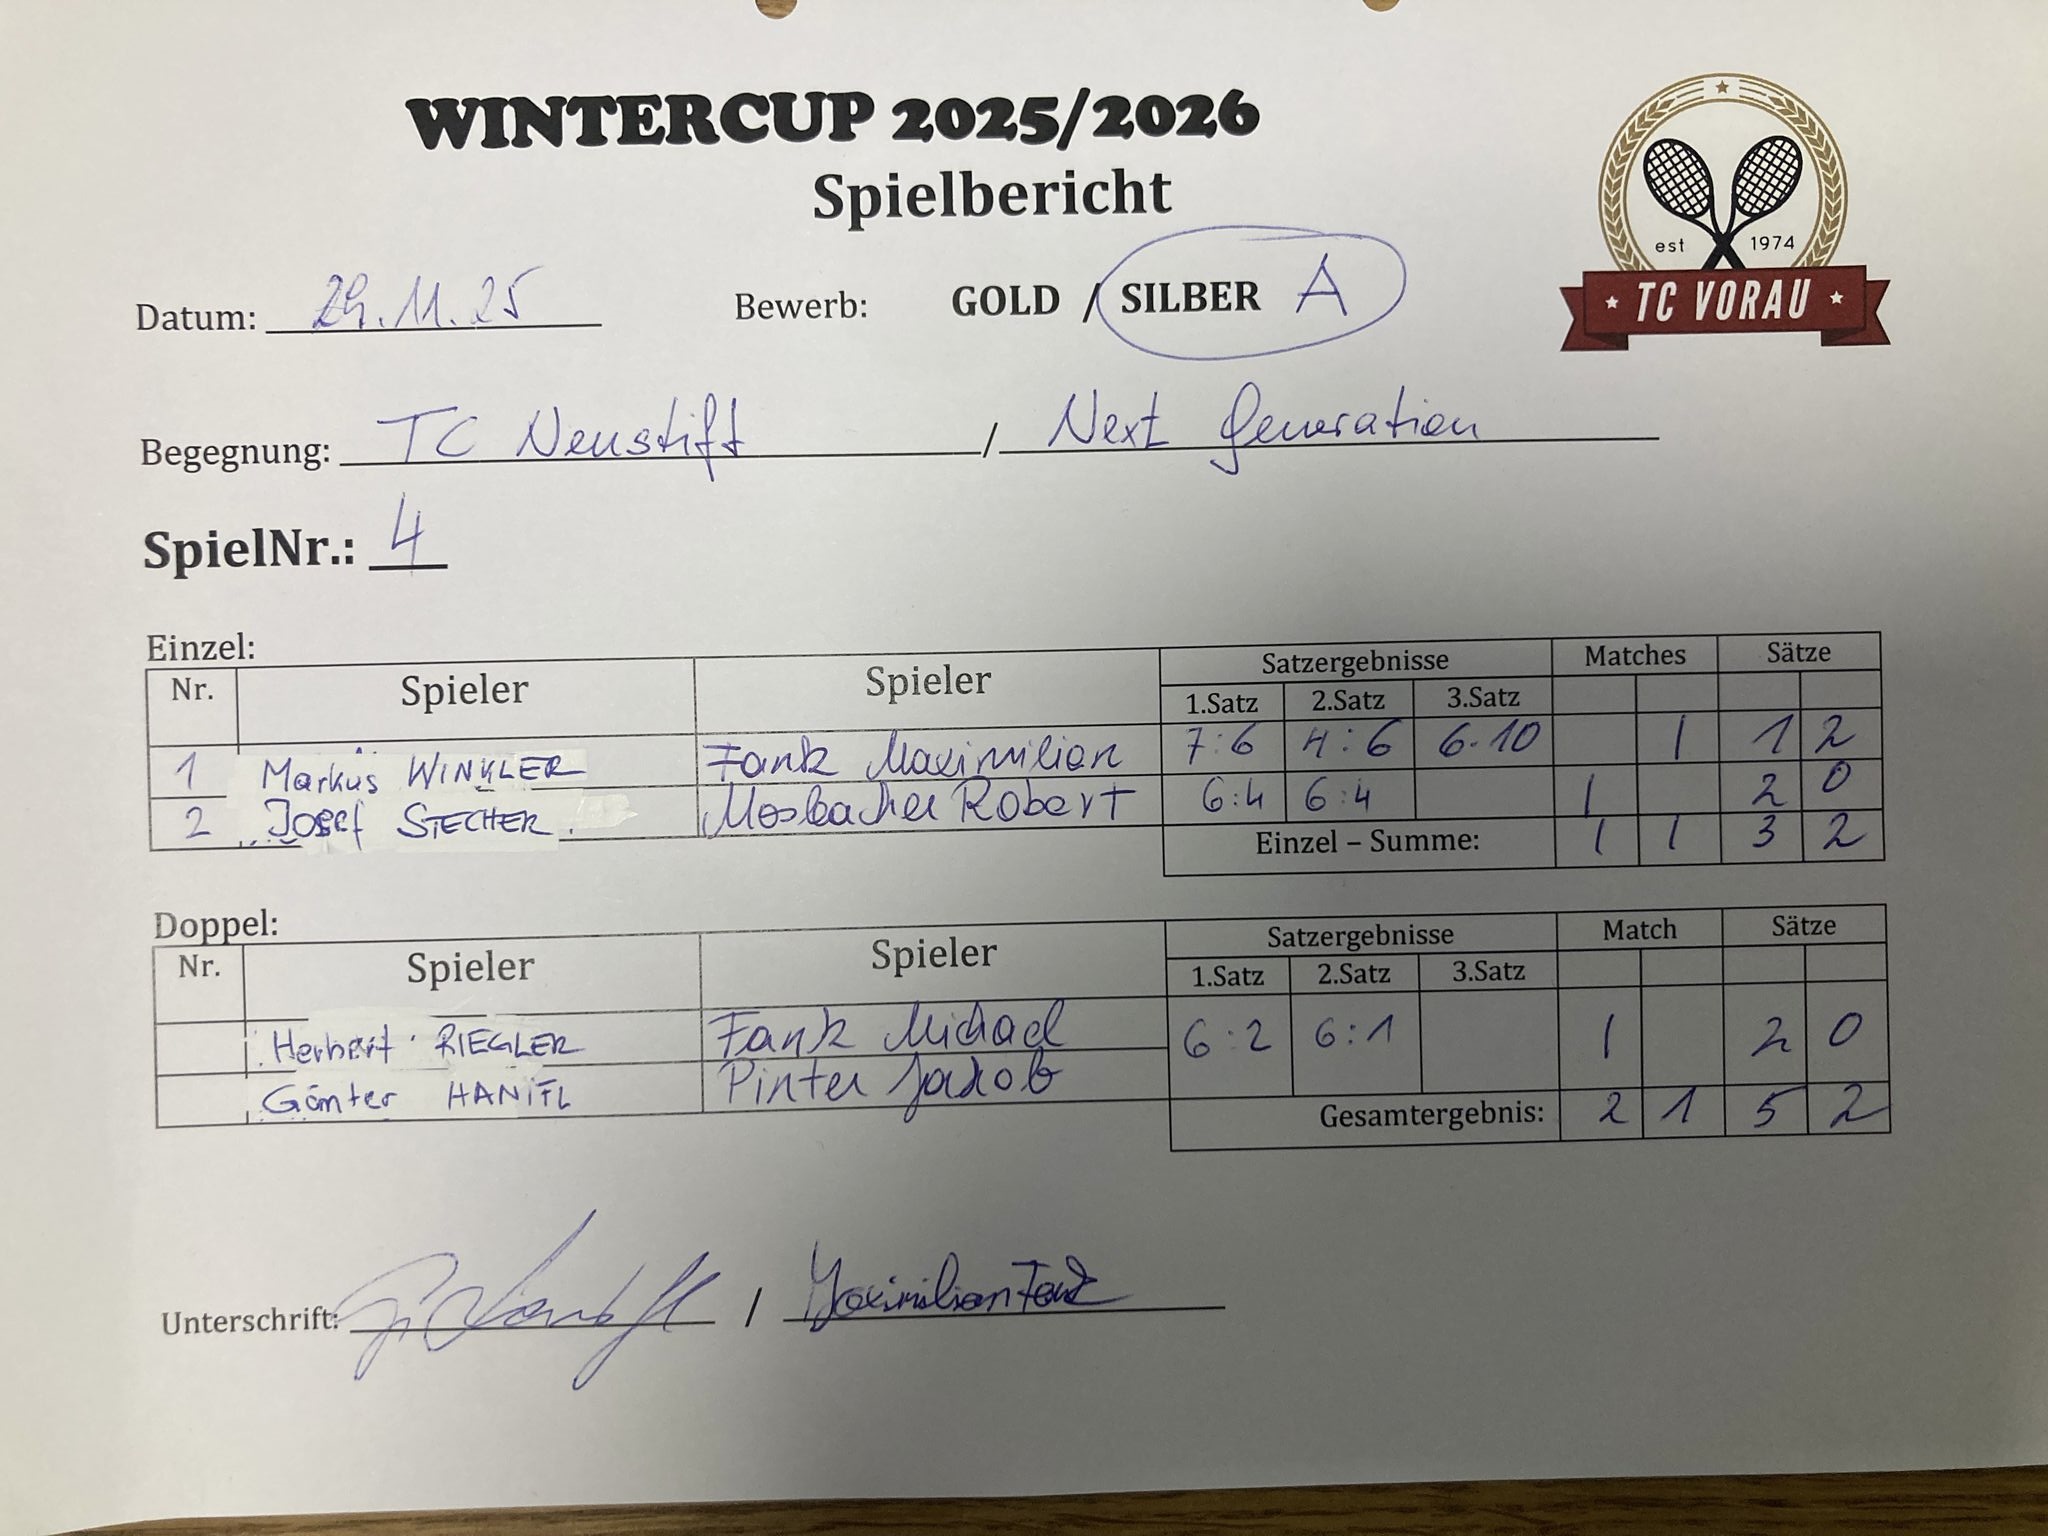 WINTERCUP 2025/2026
Spielbericht
est 1974
TC VORAU
Datum: 29.11.25 Bewerb: GOLD / SILBER A
Begegnung: TC Neustift / Next Generation
SpielNr.: 4
Einzel:
Nr. Spieler Spieler Satzergebnisse Matches Sätze
1.Satz 2.Satz 3.Satz
1 Markus WINKLER Fank Maximilian 7:6 4:6 6:10 1 1 2
2 Josef STECHER Mosbacher Robert 6:4 6:4 1 2 0
Einzel – Summe: 1 1 3 2
Doppel:
Nr. Spieler Spieler Satzergebnisse Match Sätze
1.Satz 2.Satz 3.Satz
Herbert RIEGLER Fank Michael 6:2 6:1 1 2 0
Günter HANIFL Pinter Jakob
Gesamtergebnis: 2 1 5 2
Unterschrift: / Maximilian Fank